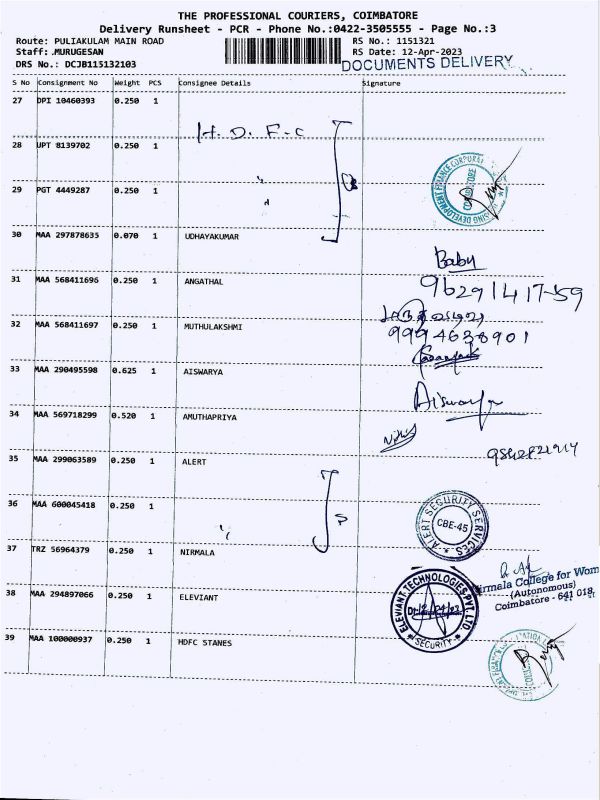 THE PROFESSIONAL COURIERS, COIMBATORE
Delivery Runsheet - PCR - Phone No.:0422-3505555 - Page No.:3
Route: PULIAKULAM MAIN ROAD RS No.: 1151321
Staff: .MURUGESAN RS Date: 12-Apr-2023
DRS No.: DCJB115132103 DOCUMENTS DELIVERY
S No Consignment No Weight PCS Consignee Details Signature
27 DPI 10460393 0.250 1
H.D.F.C
28 UPT 8139702 0.250 1
29 PGT 4449287 0.250 1
30 MAA 297878635 0.070 1 UDHAYAKUMAR
Baby
31 MAA 568411696 0.250 1 ANGATHAL
9629141759
32 MAA 568411697 0.250 1 MUTHULAKSHMI
9994638901
33 MAA 290495598 0.625 1 AISWARYA
Aiswarya
34 MAA 569718299 0.520 1 AMUTHAPRIYA
35 MAA 299063589 0.250 1 ALERT
36 MAA 600045418 0.250 1
ALERT SECURITY SERVICES
CBE-45
37 TRZ 56964379 0.250 1 NIRMALA
Nirmala College for Wom
(Autonomous)
Coimbatore - 641 018
38 MAA 294897066 0.250 1 ELEVIANT
ELEVIANT TECHNOLOGIES PVT. LTD
SECURITY
39 MAA 100000937 0.250 1 HDFC STANES